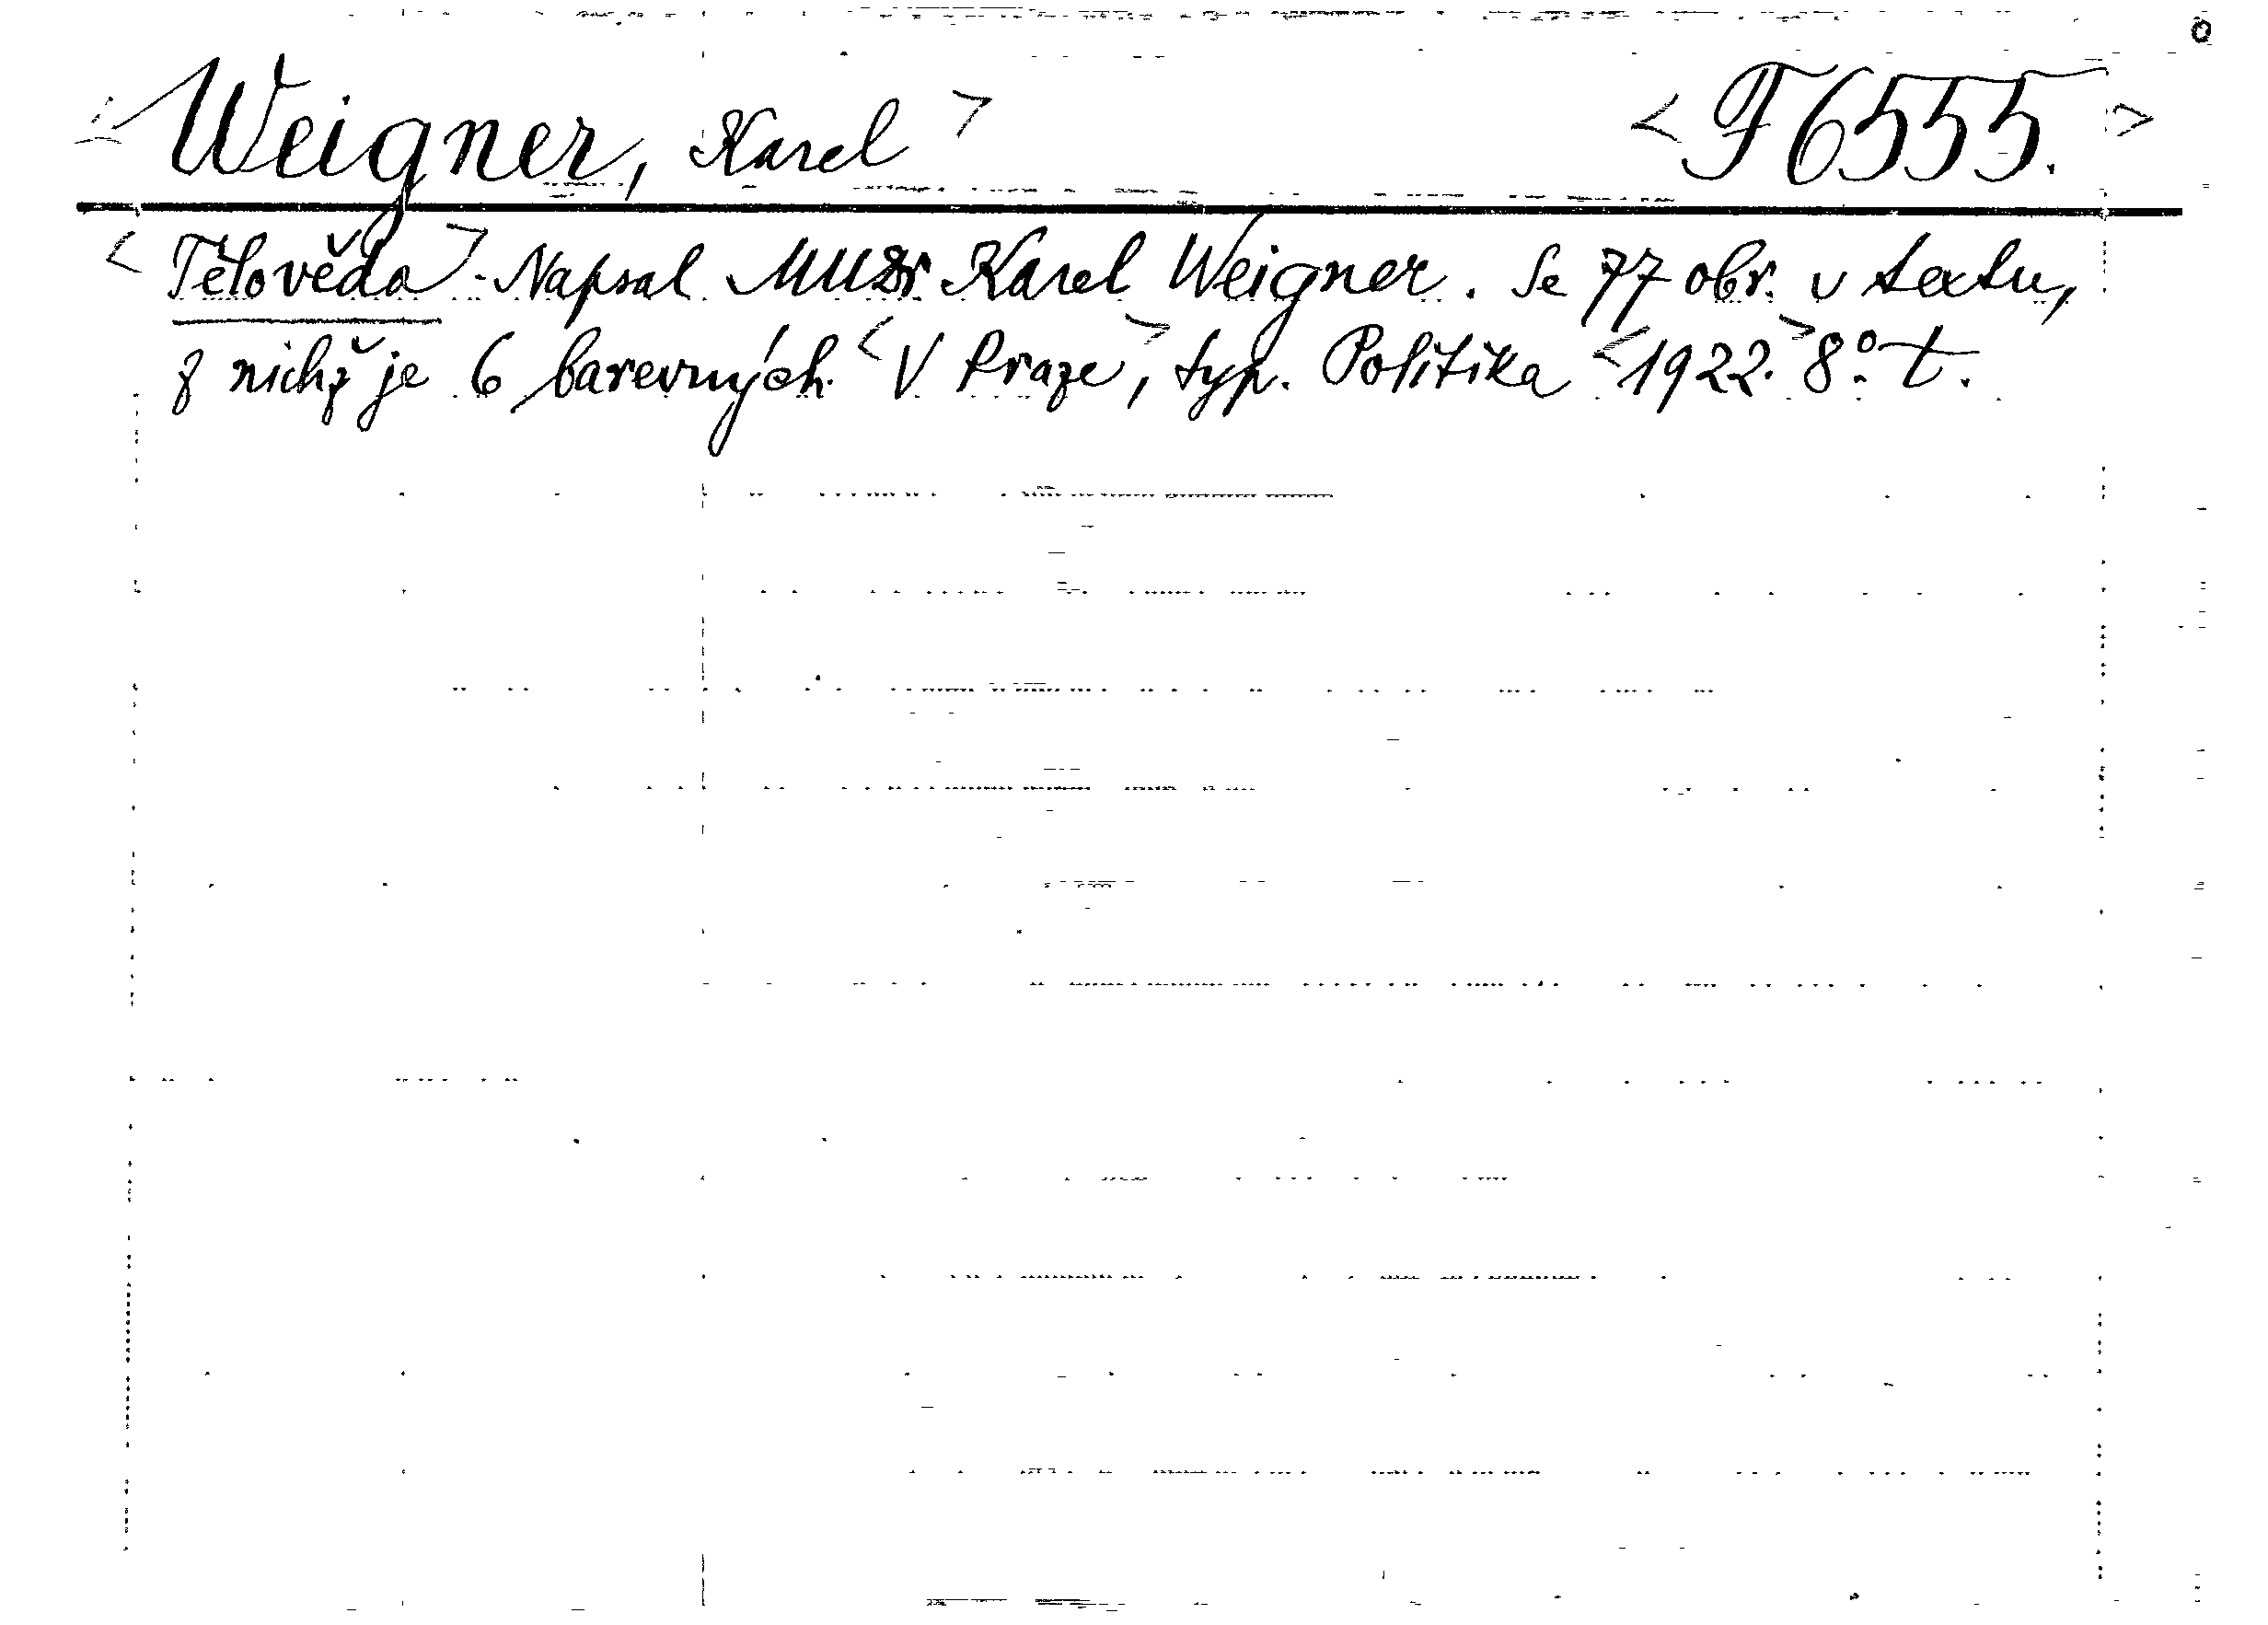 <Weigner, Karel> <F6555.>
<Tělověda>. Napsal MUDr Karel Weigner. Se 77 obr. v textu,
z nichž je 6 barevných. <V Praze>, typ. Politika <1922.> 8°. t.